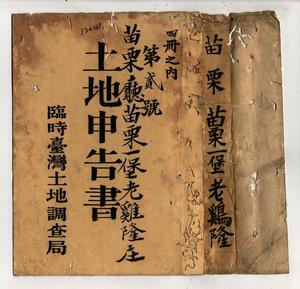 苗栗 苗栗一堡老鷄隆
四冊之內
第貳號
苗栗廳苗栗一堡老雞隆庄
土地申告書
臨時臺灣土地調查局